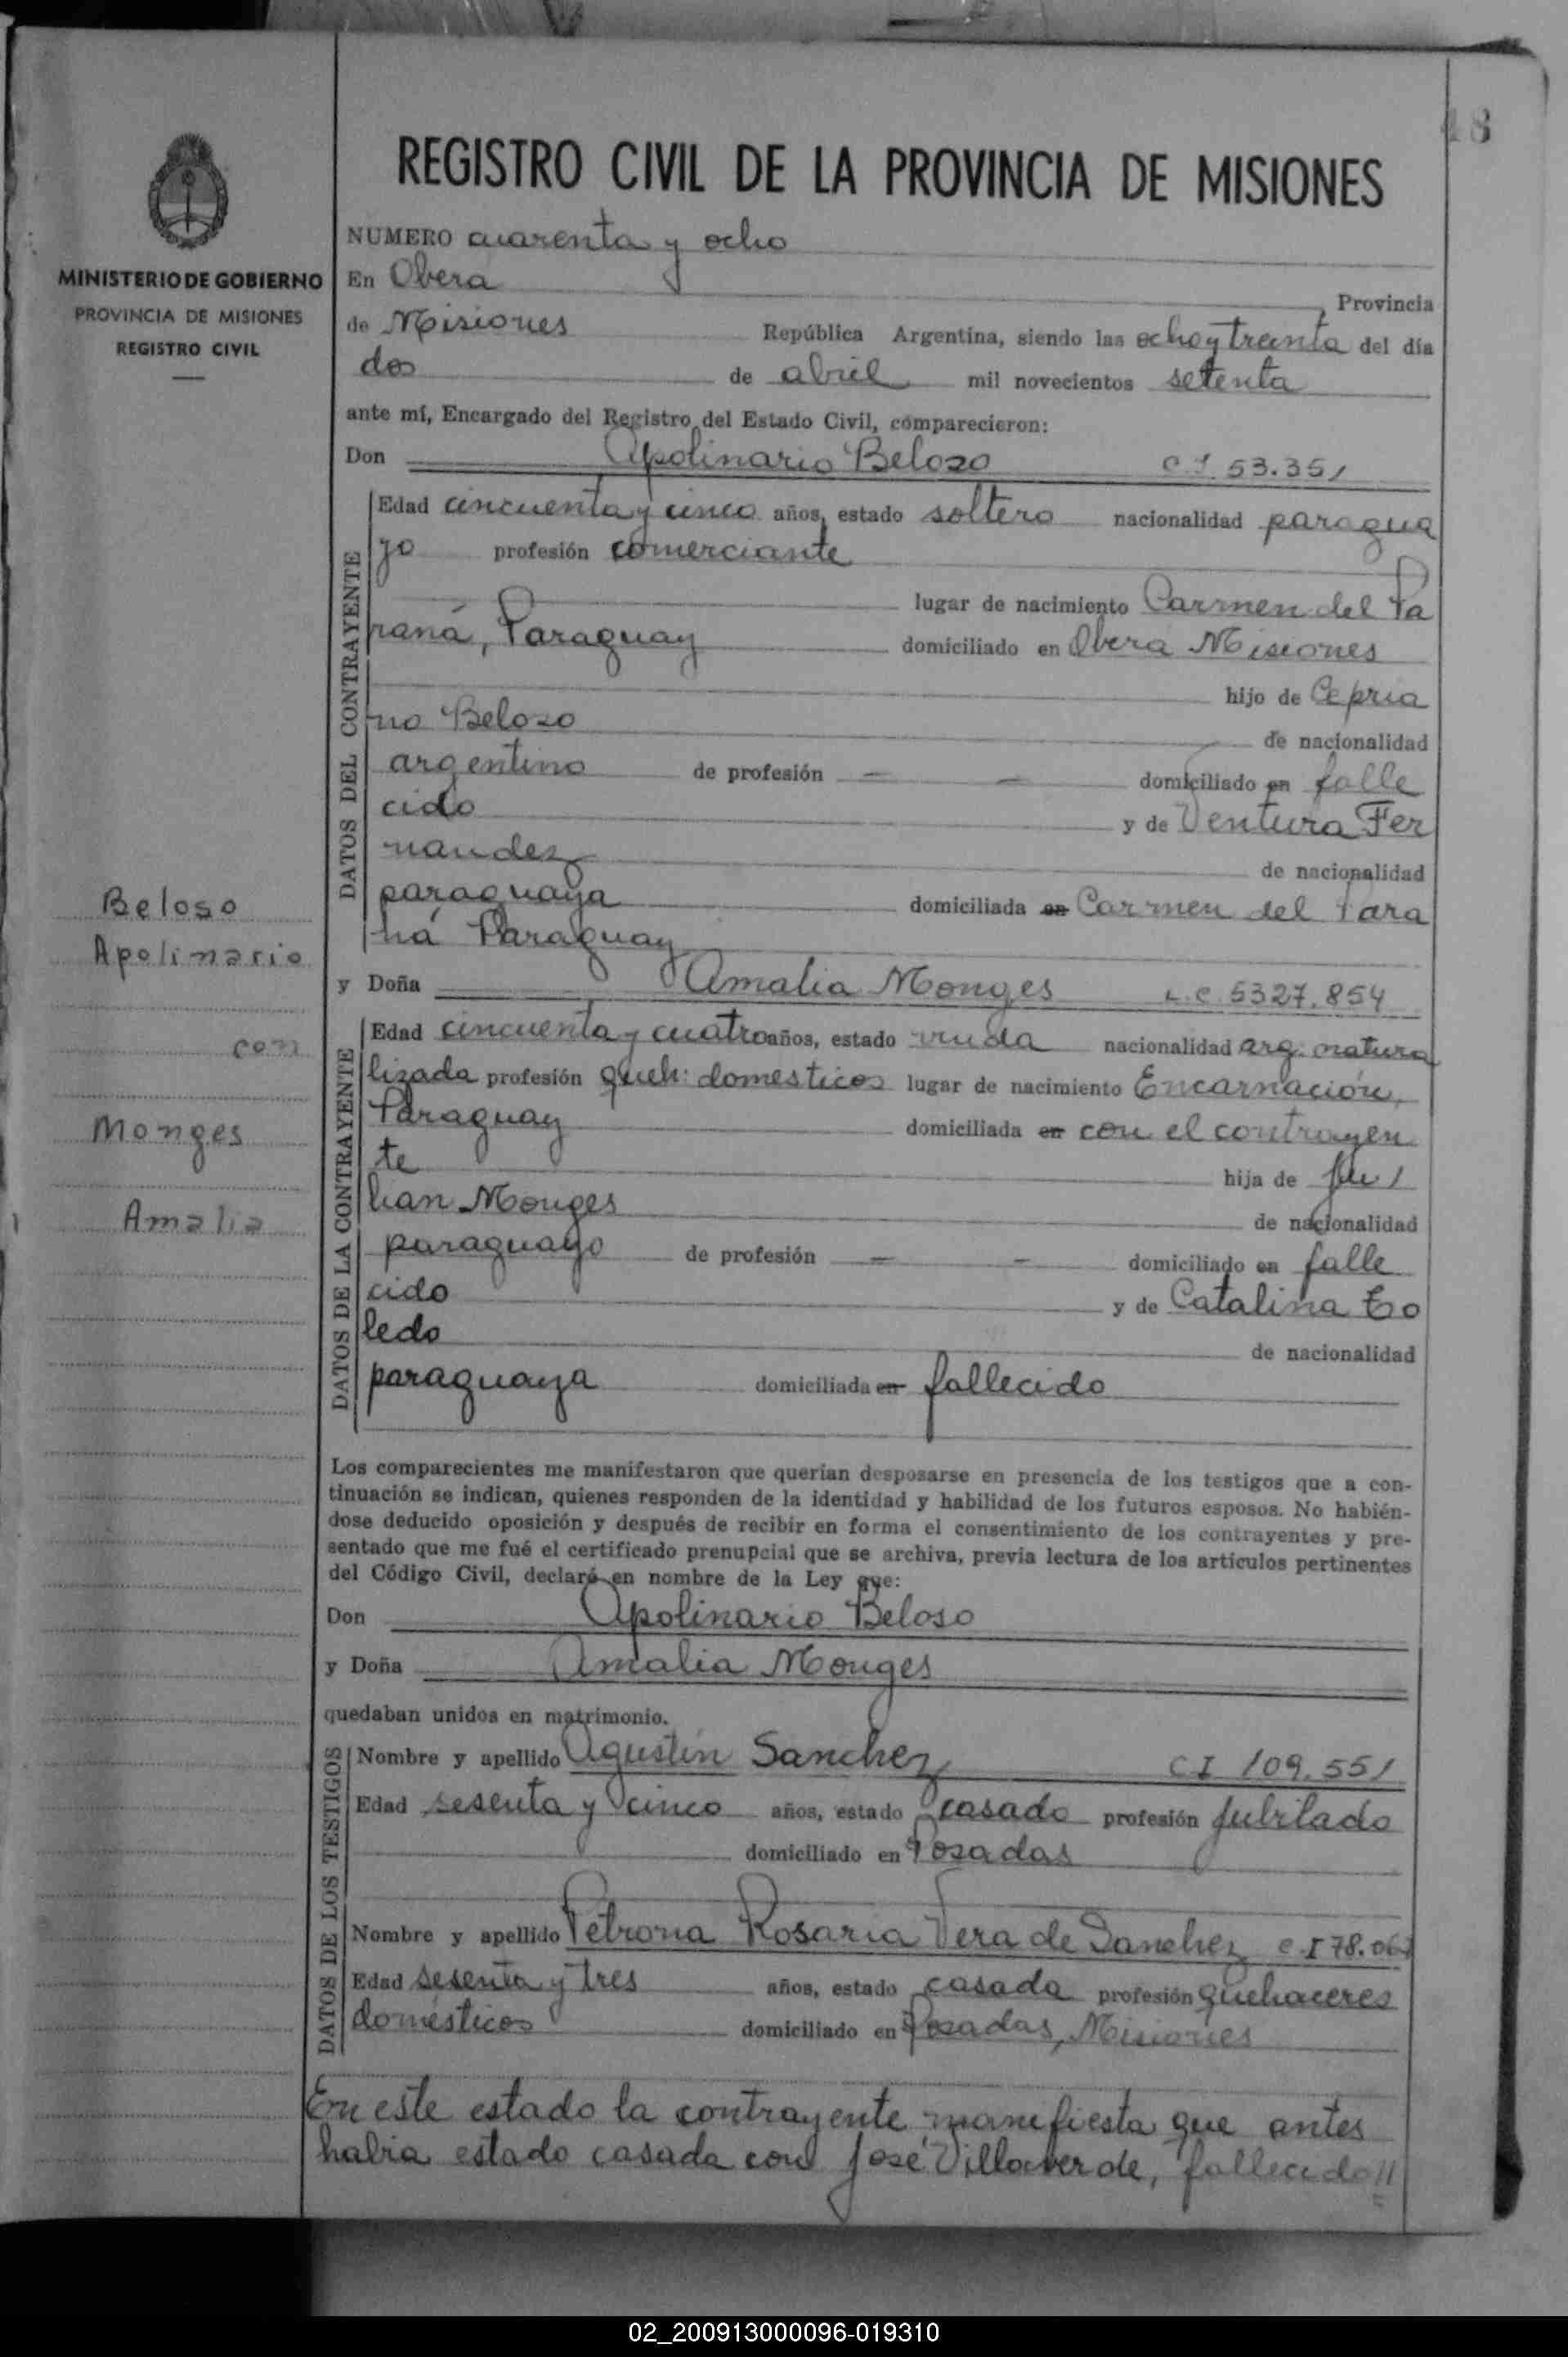 48
REGISTRO CIVIL DE LA PROVINCIA DE MISIONES
MINISTERIO DE GOBIERNO
PROVINCIA DE MISIONES
REGISTRO CIVIL
NUMERO cuarenta y ocho
En Obera, Provincia
de Misiones República Argentina, siendo las ocho y treinta del día
dos de abril mil novecientos setenta
ante mí, Encargado del Registro del Estado Civil, comparecieron:
Don Apolinario Beloso C I 53.351
DATOS DEL CONTRAYENTE
Edad cincuenta y cinco años, estado soltero nacionalidad paragua
yo profesión comerciante
lugar de nacimiento Carmen del Pa
raná, Paraguay domiciliado en Obera Misiones
hijo de Cepria
no Beloso de nacionalidad
argentino de profesión — — domiciliado en falle
cido y de Ventura Fer
nandez de nacionalidad
paraguaya domiciliada en Carmen del Para
ná Paraguay
Beloso
Apolinario
con
Monges
Amalia
y Doña Amalia Monges L.C. 5327.854
DATOS DE LA CONTRAYENTE
Edad cincuenta y cuatro años, estado viuda nacionalidad arg. natura
lizada profesión queh: domesticos lugar de nacimiento Encarnación,
Paraguay domiciliada en con el contrayen
te hija de Ju
lian Monges de nacionalidad
paraguayo de profesión — — domiciliado en falle
cido y de Catalina To
ledo de nacionalidad
paraguaya domiciliada en fallecido
Los comparecientes me manifestaron que querían desposarse en presencia de los testigos que a con-
tinuación se indican, quienes responden de la identidad y habilidad de los futuros esposos. No habién-
dose deducido oposición y después de recibir en forma el consentimiento de los contrayentes y pre-
sentado que me fué el certificado prenupcial que se archiva, previa lectura de los artículos pertinentes
del Código Civil, declaré en nombre de la Ley que:
Don Apolinario Beloso
y Doña Amalia Monges
quedaban unidos en matrimonio.
DATOS DE LOS TESTIGOS
Nombre y apellido Agustín Sanchez CI 109.551
Edad sesenta y cinco años, estado casado profesión Jubilado
domiciliado en Posadas
Nombre y apellido Petrona Rosaria Vera de Sanchez C.I 78.06
Edad sesenta y tres años, estado casada profesión quehaceres
domésticos domiciliado en Posadas, Misiones
En este estado la contrayente manifiesta que antes
habia estado casada con José Villaverde, fallecido//
02_200913000096-019310